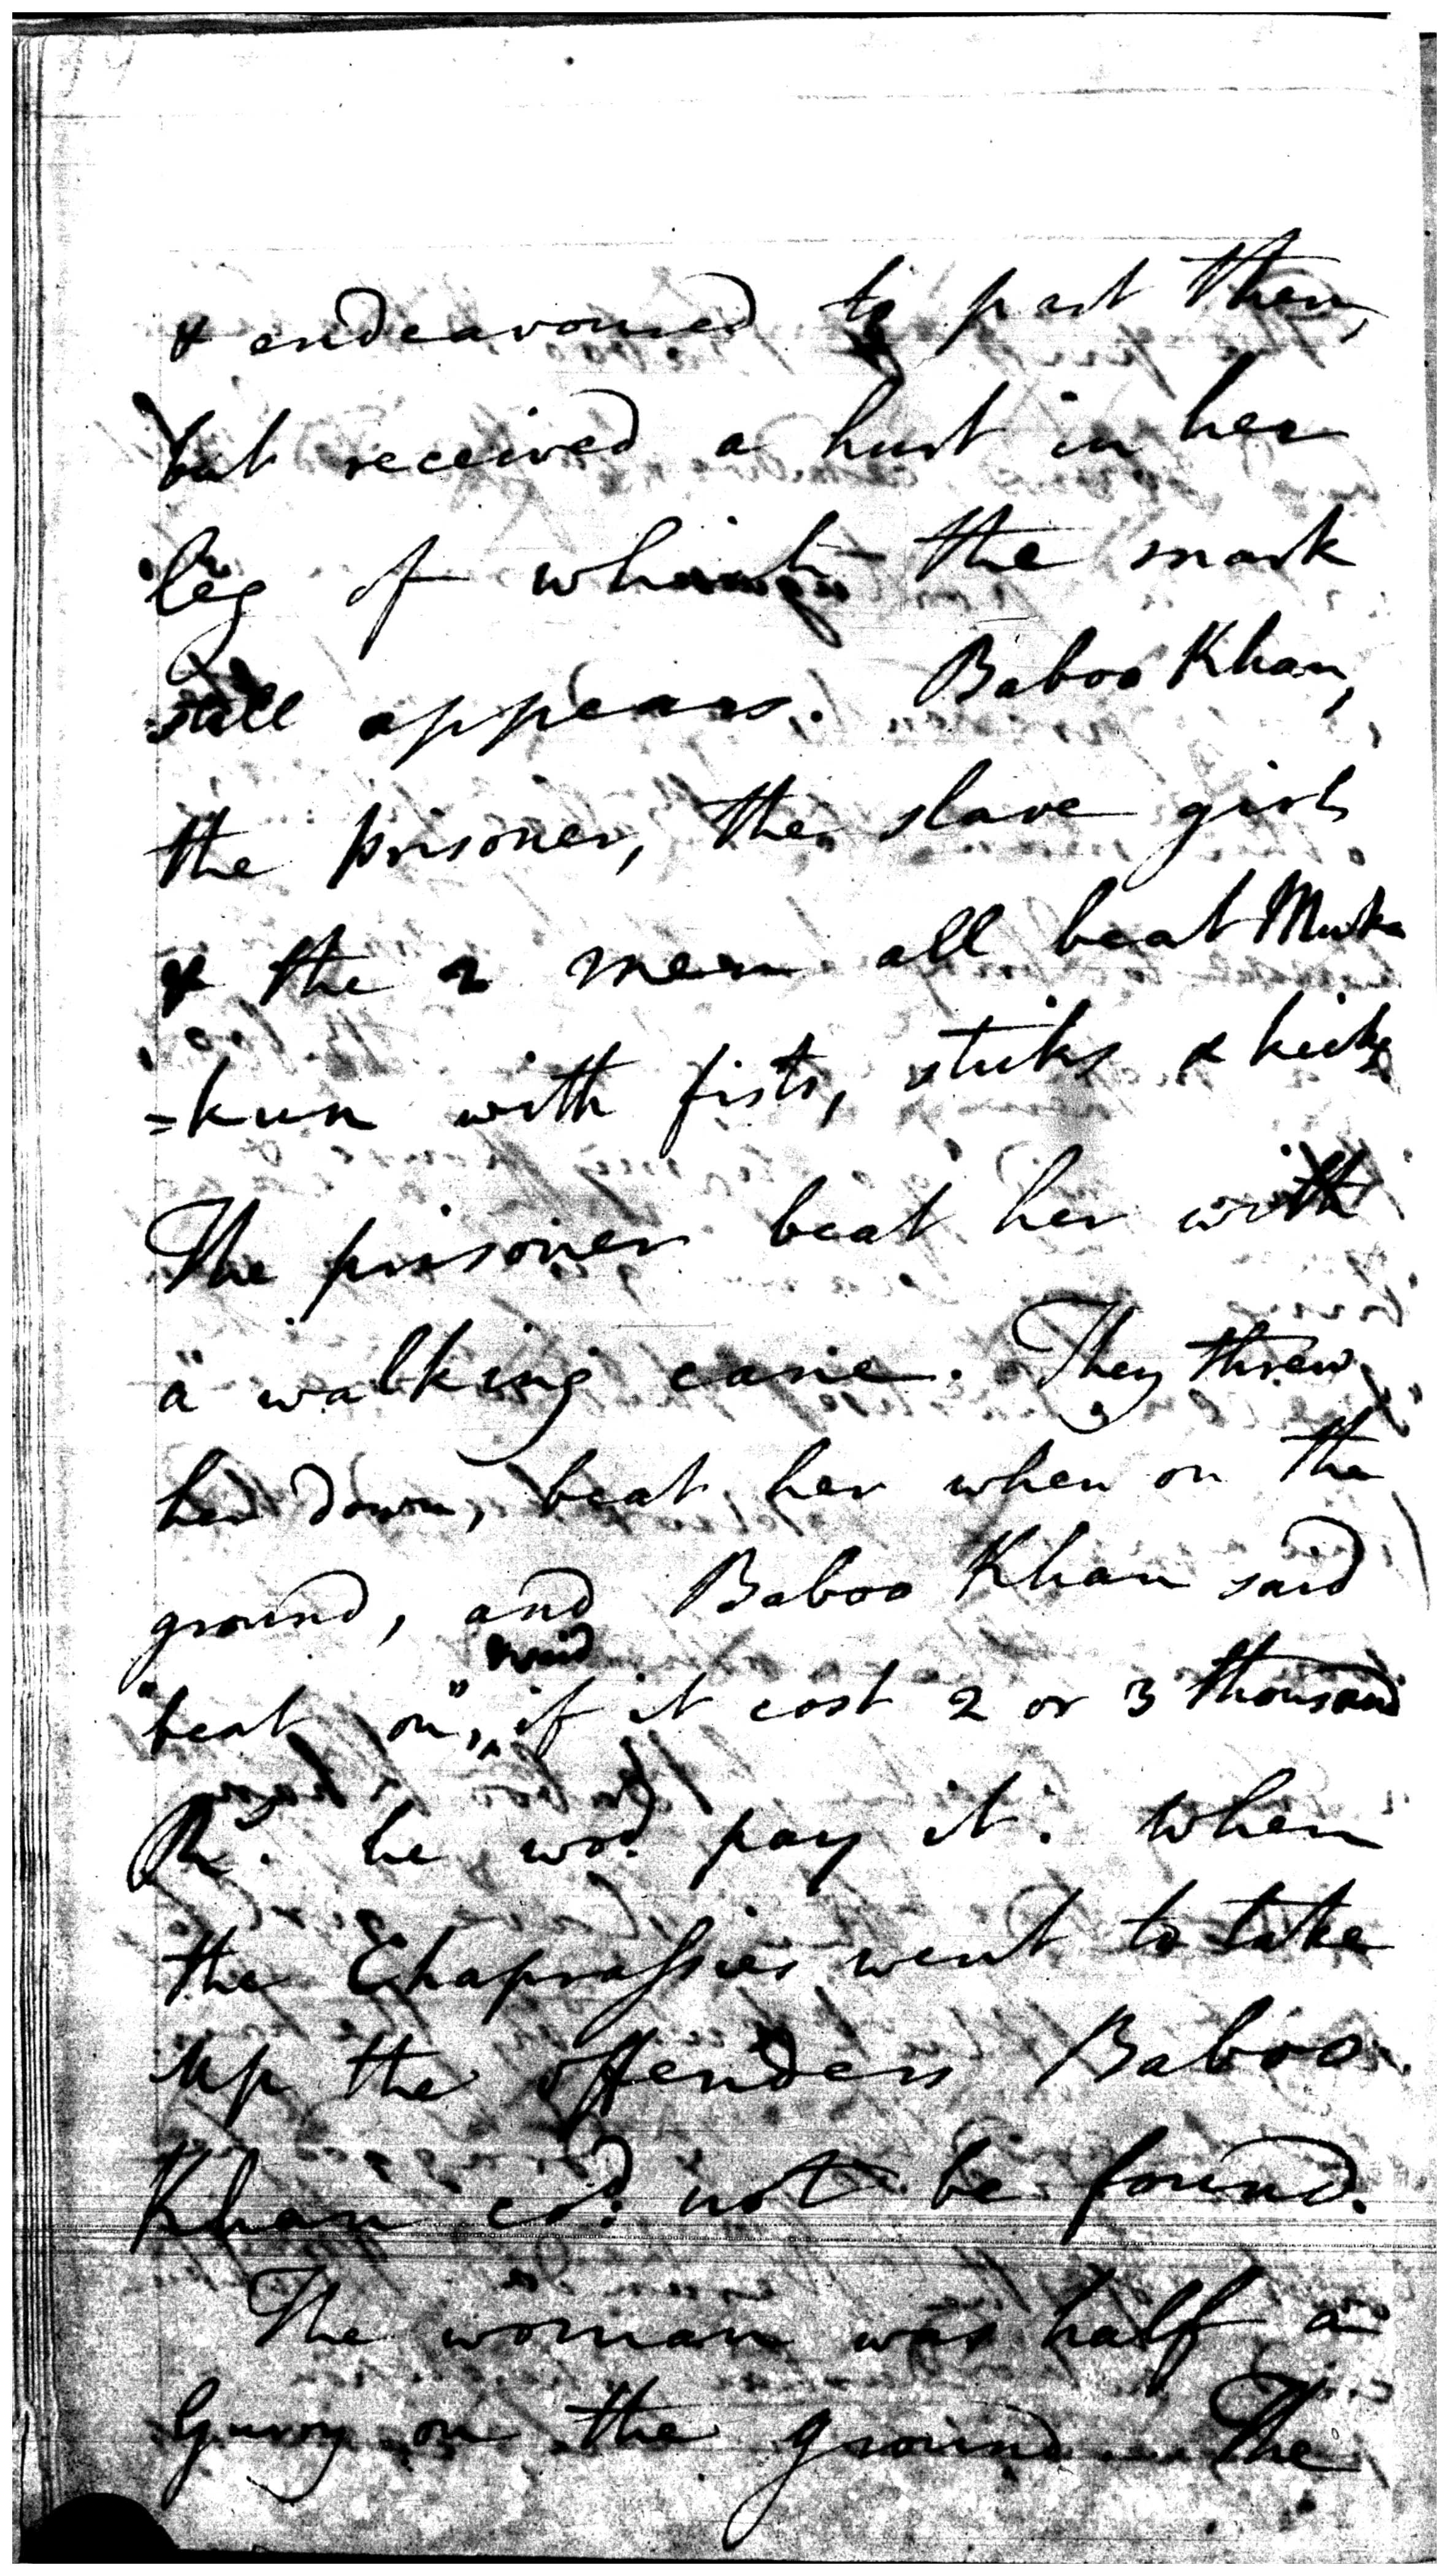 & endeavoured to part them,
but received a hurt in her
leg of which the mark
still appears. Baboo Khan,
the prisoner, the slave girls
& the 2 men all beat Muka
=kun with fists, sticks & kicks
The prisoner beat her with
a walking cane. They threw
her down, beat her when on the
ground, and Baboo Khan said
said
"beat on", if it cost 2 or 3 thousand
Rs. he wod. pay it. When
the Chaprassies went to take
up the offenders Baboo
Khan cod. not be found.
The woman was half a
Gurry on the ground. The